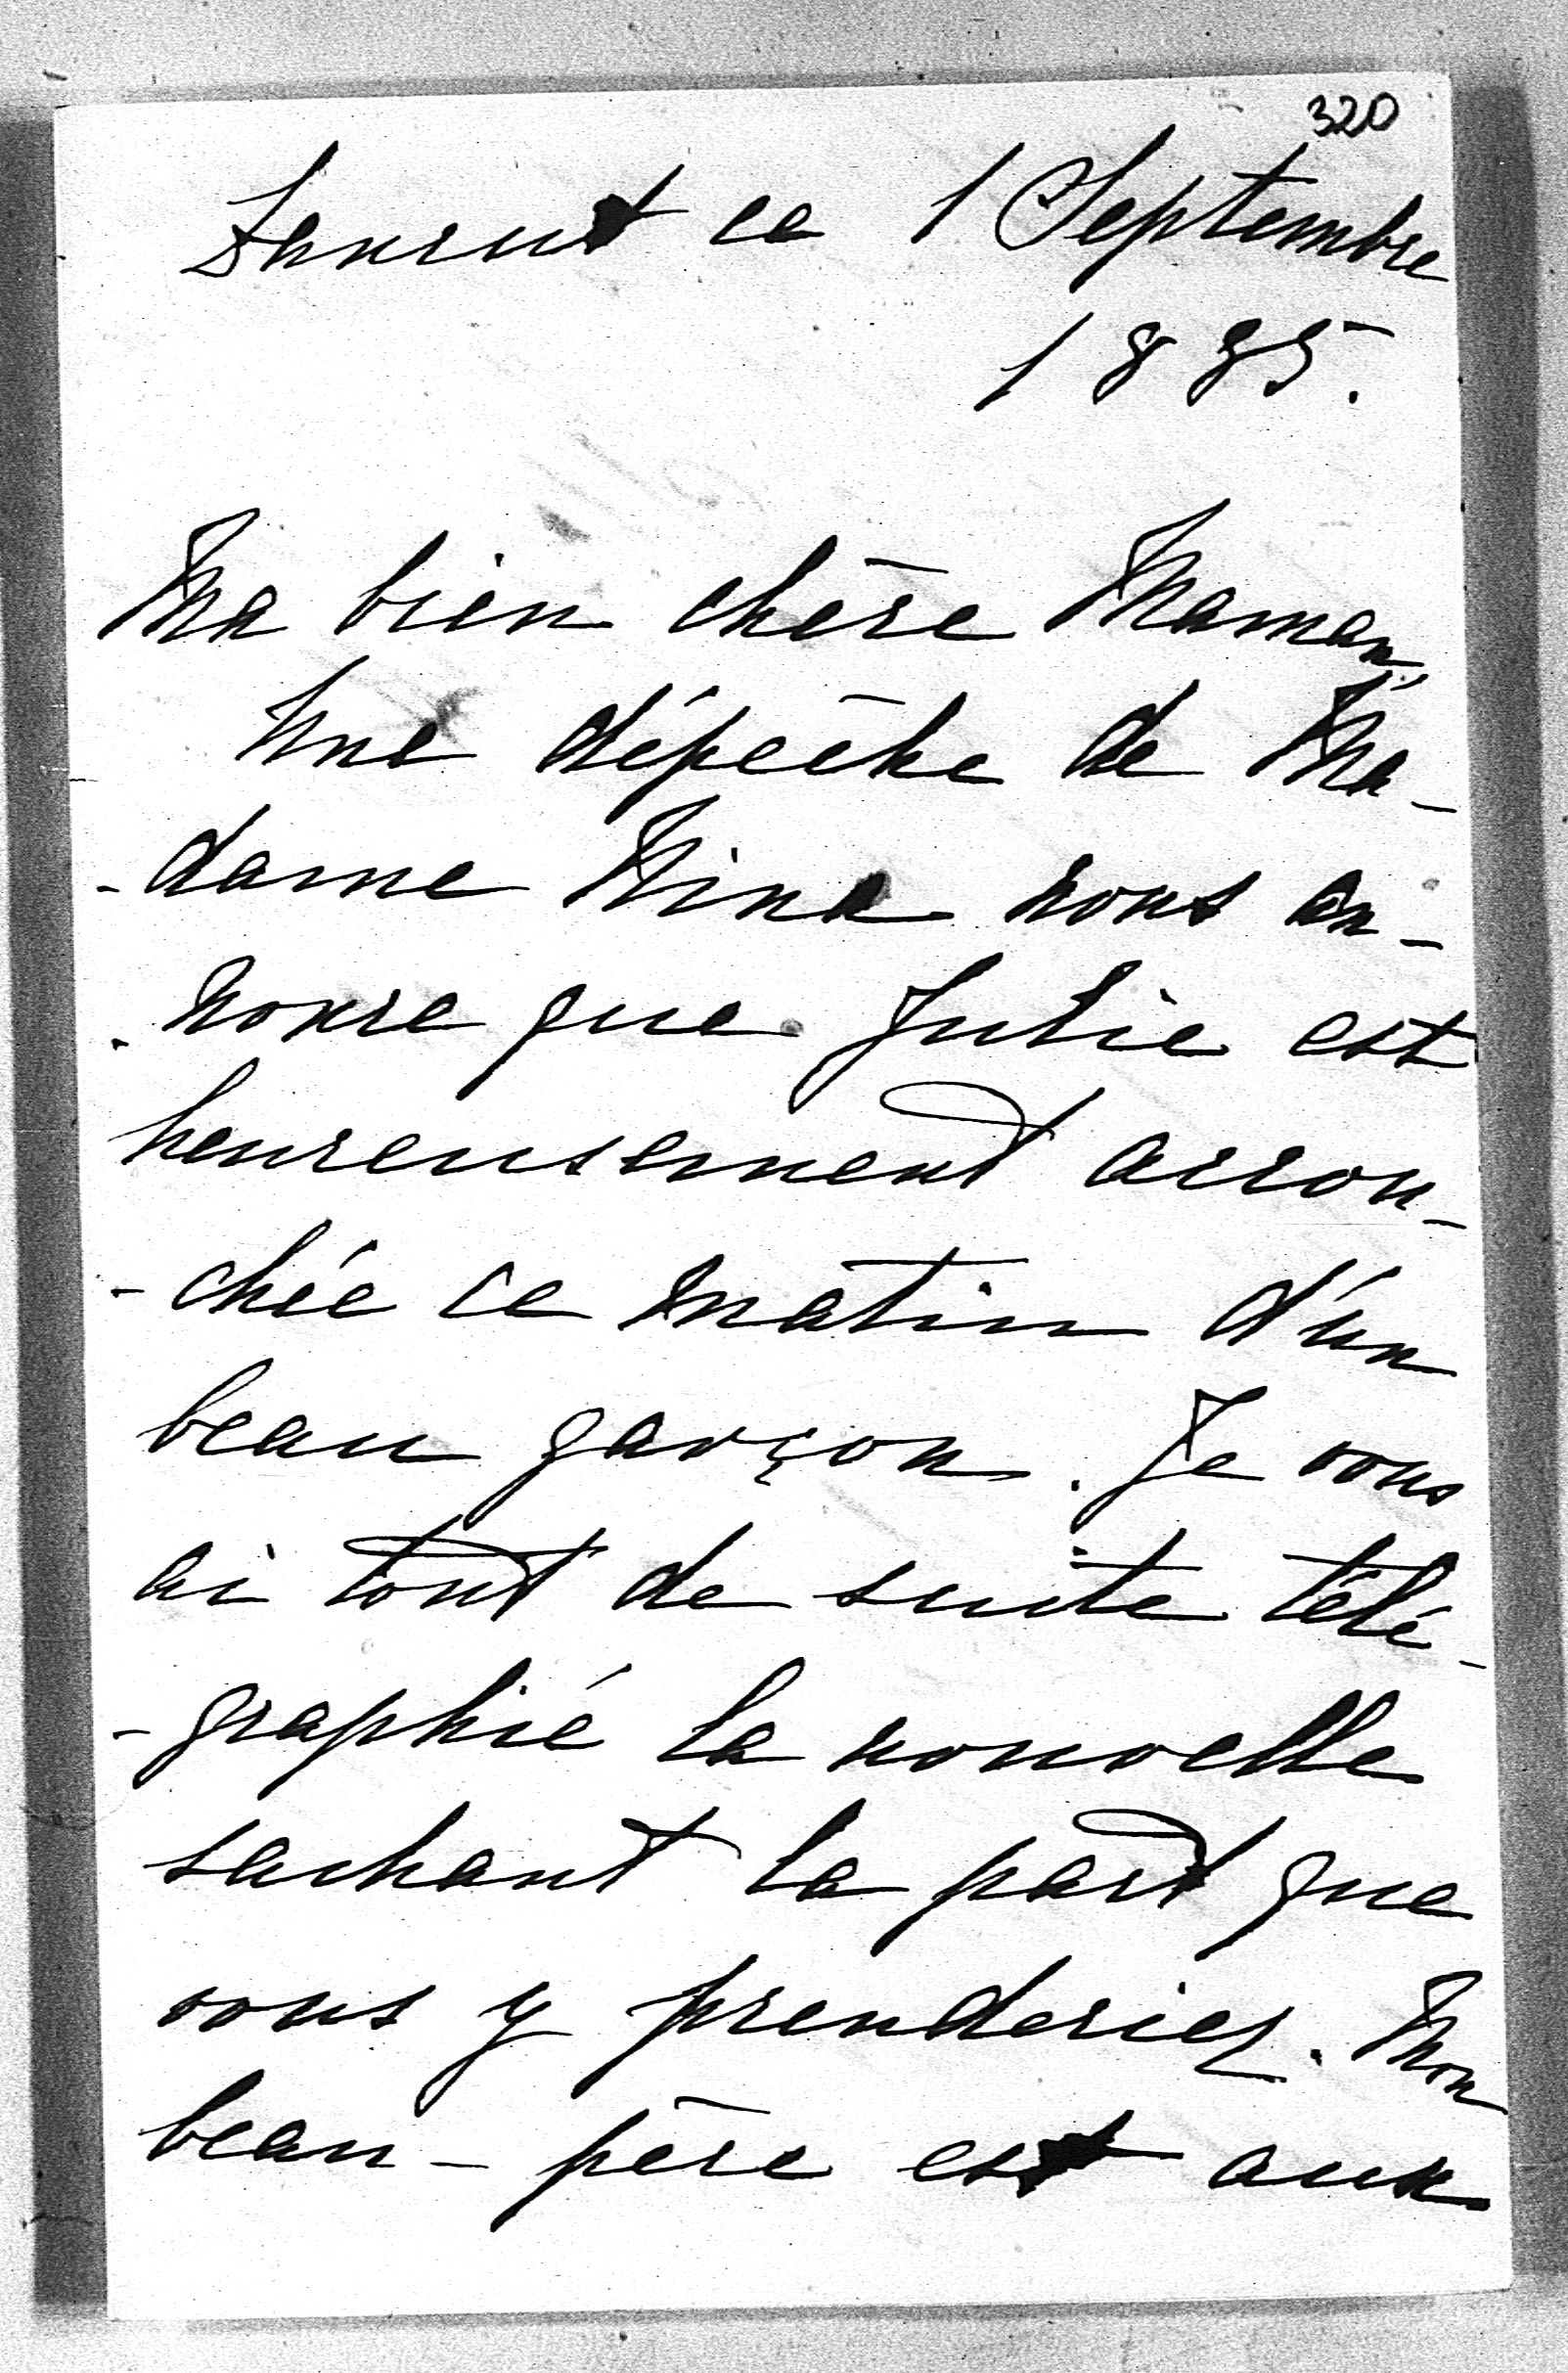 320
Łańcut ce 1 Septembre
1885.
Ma bien chère Maman,
Une dépêche de Ma-
-dame Nina nous an-
-nonce que Julie est
heureusement accou-
-chée ce matin d'un
beau garçon. Je vous
ai tout de suite télé-
-graphié la nouvelle
sachant la part que
vous y prenderiez. Mon
beau-père est aux